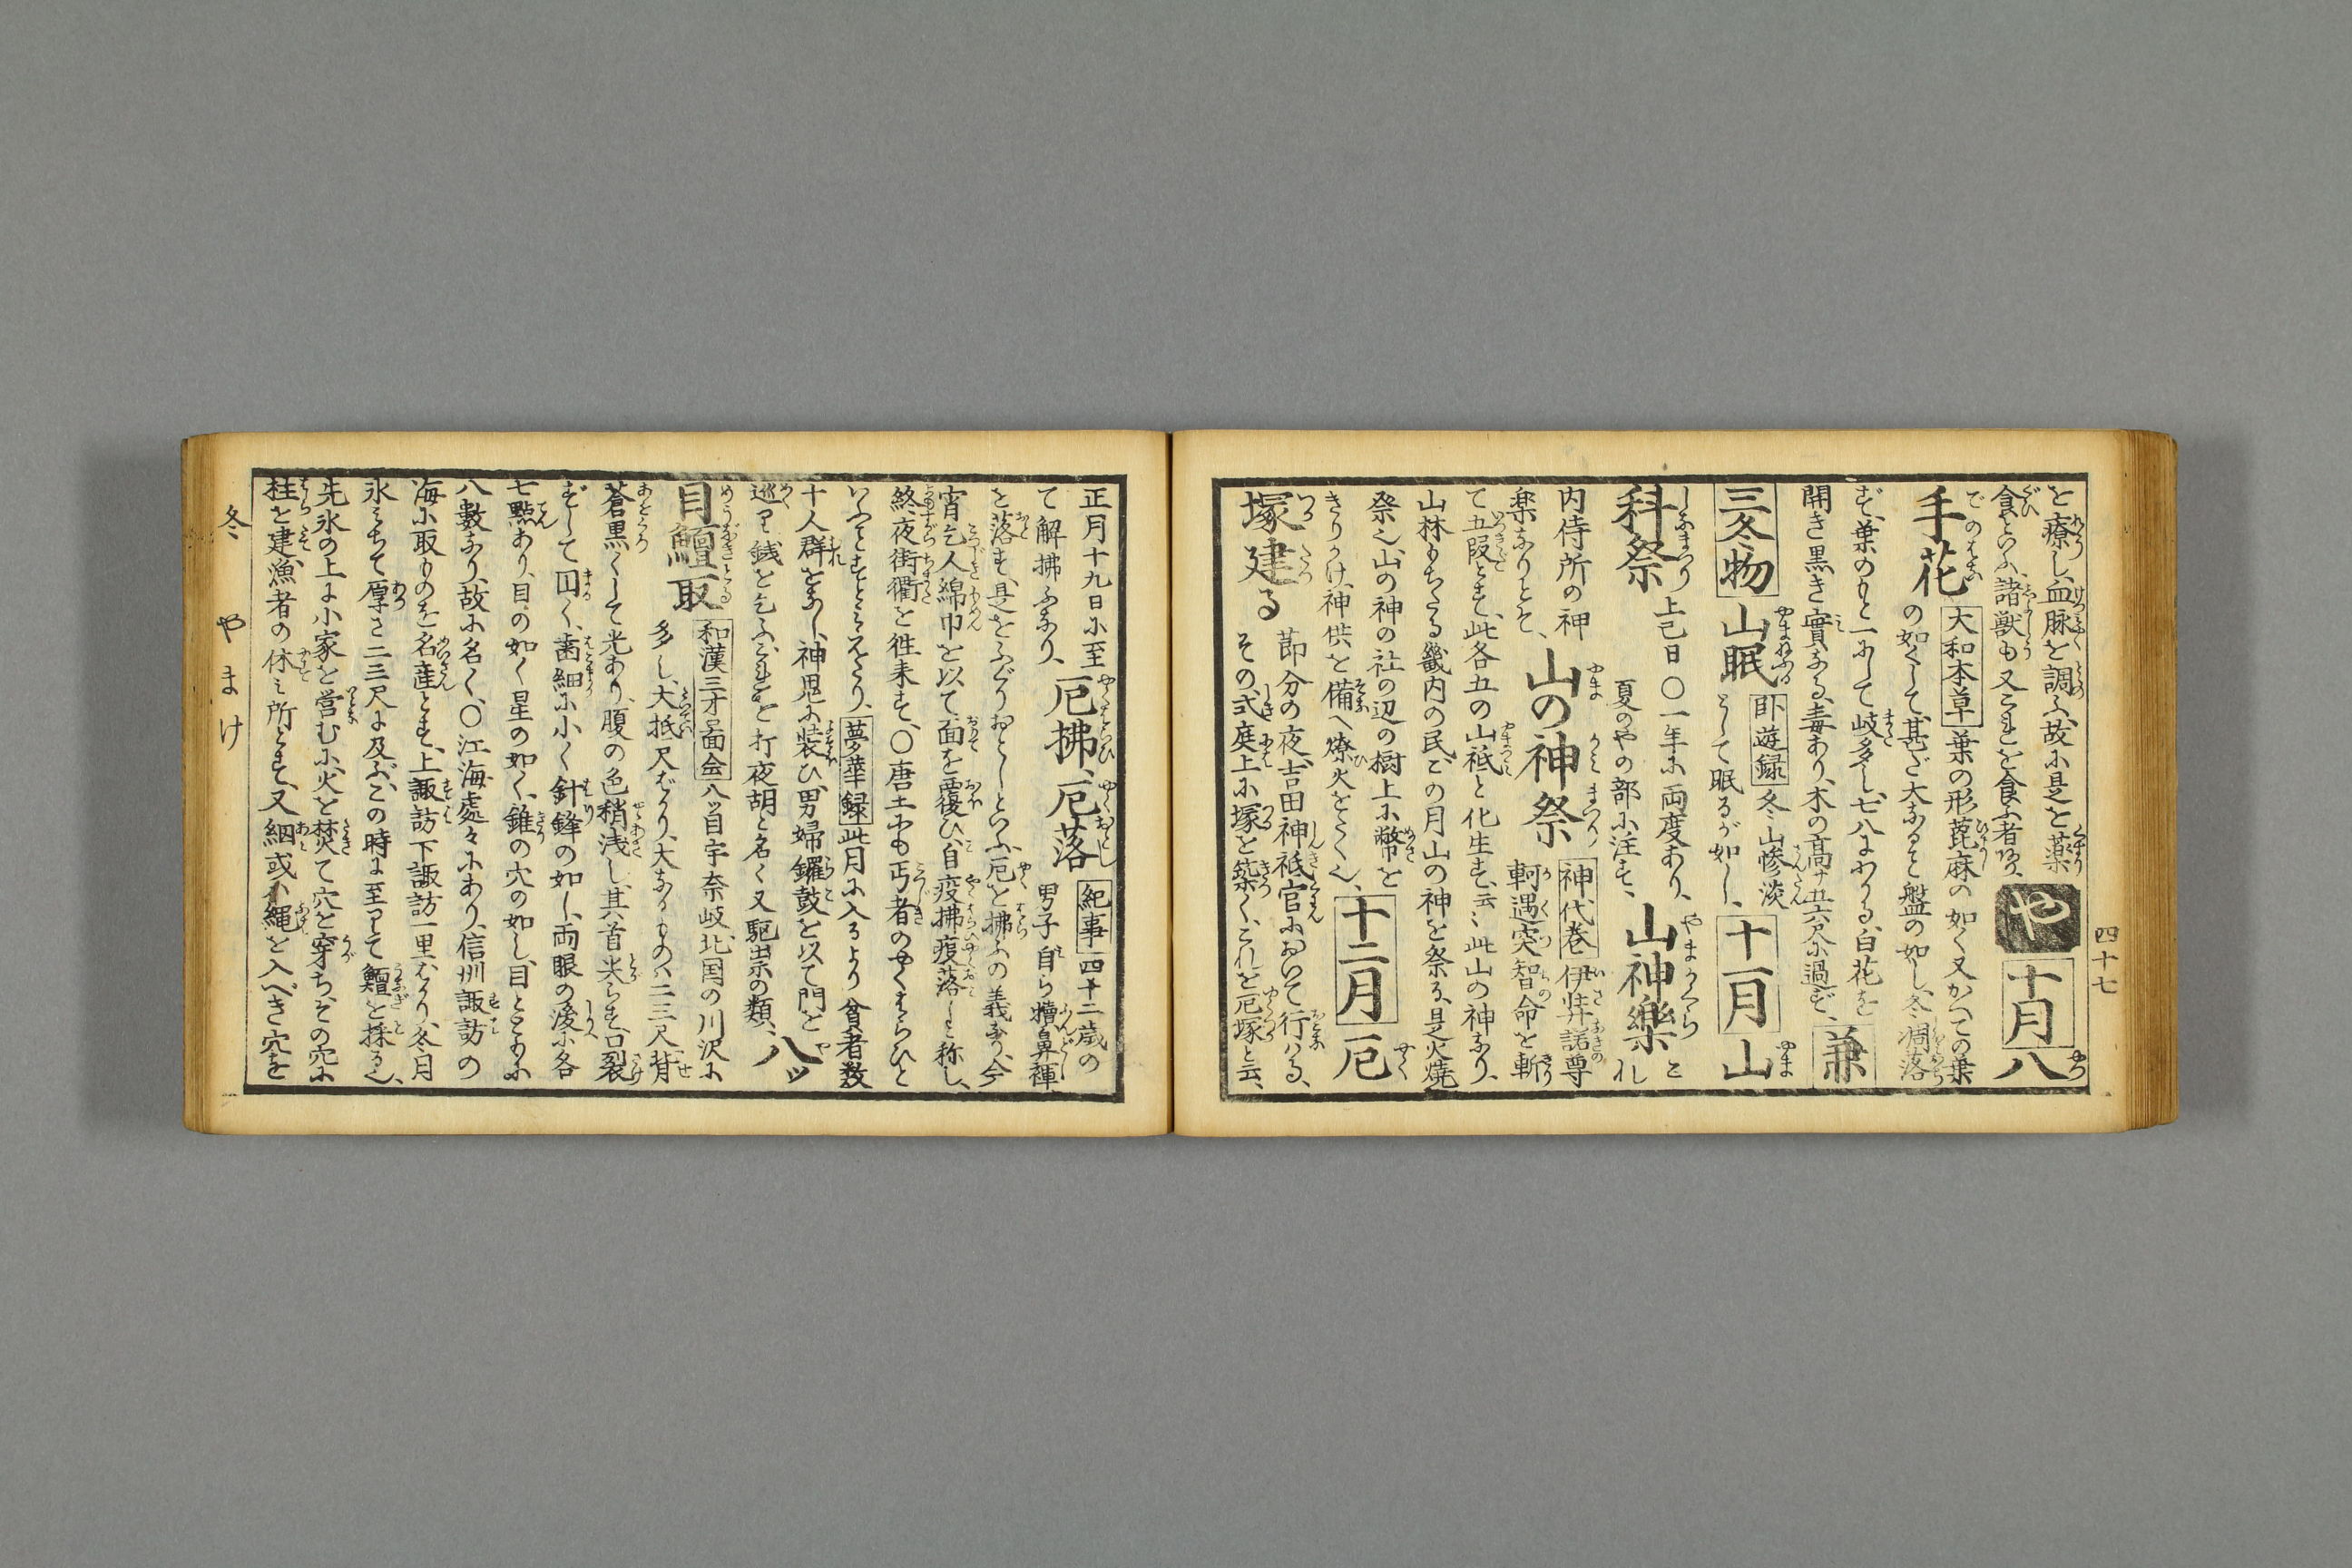 四十七
を療し、血脉を調ふ、故に是を薬
食といふ、諸獣も又これを食ふ者
や
十月
八
手花
大和本草
葉の形萞麻の如く又かへての葉
の如くして、甚だ大なること盤の如し、冬凋落
ず、葉のもと一にして岐多し、七八にわかる、白花を
開き黒き實なる、毒あり、木の高サ五六尺に過ず、
兼
三冬物
山眠
臥遊録
冬山惨淡
として眠るが如し、
十一月
山
科祭
上巳日〇一年に両度あり、
夏のやの部に注す、
山神樂
これ
内侍所の神
楽なりとそ、
山の神祭
神代巻
伊弉諾尊
軻遇突智命を斬
て五段とす、此各五の山祇と化生す、云々此山の神なり、
山林もちたる畿内の民、この月山の神を祭る、是火焼
祭也、山の神の社の辺の樹上に幣を
きりかけ、神供を備へ燎火をたく也、
十二月
厄
塚建る
節分の夜、吉田神祇官において行はる、
その式庭上に塚を築く、これを厄塚と云、
正月十九日に至
て解拂ふなり、
厄拂、厄落
紀事
四十二歳の
男子自ら犢鼻褌
を落す、是をふぐりおとしといふ、厄を拂ふの義なり、今
宵乞人綿巾を以て、面を覆ひ、自疫拂疫落と称し、
終夜街衢を徃来す、〇唐土にも丐者のやくはらひと
いふことすとみえたり、
夢華録
此月に入るより貧者数
十人群をなし、神鬼に装ひ、男婦鑼鼓を以て門を
巡り銭を乞ふ、これを打夜胡と名く又駆祟の類、
八ッ
目鱣取
和漢三才圖会
八ッ目宇奈岐、北国の川沢に
多し、大抵尺ばかり、大なるもの二三尺、背
蒼黒くして光あり、腹の色稍浅し、其首尖らず、口裂
ずして囙く、歯細に小く針鋒の如し、両眼の後に各
七點あり、目の如く星の如く、錐の穴の如し、目とともに
八數なり、故に名く、〇江海處々にあり、信州諏訪の
海に取ものを名産とす、上諏訪下諏訪一里ばかり、冬月
氷みちて厚さ二三尺に及ぶ、この時に至りて鱣を採る也、
先氷の上に小家を営むに、火を焚て穴を穿ち、その穴に
柱を建、漁者の休み所とす、又網或ハ縄を入べき穴を
冬
やまけ